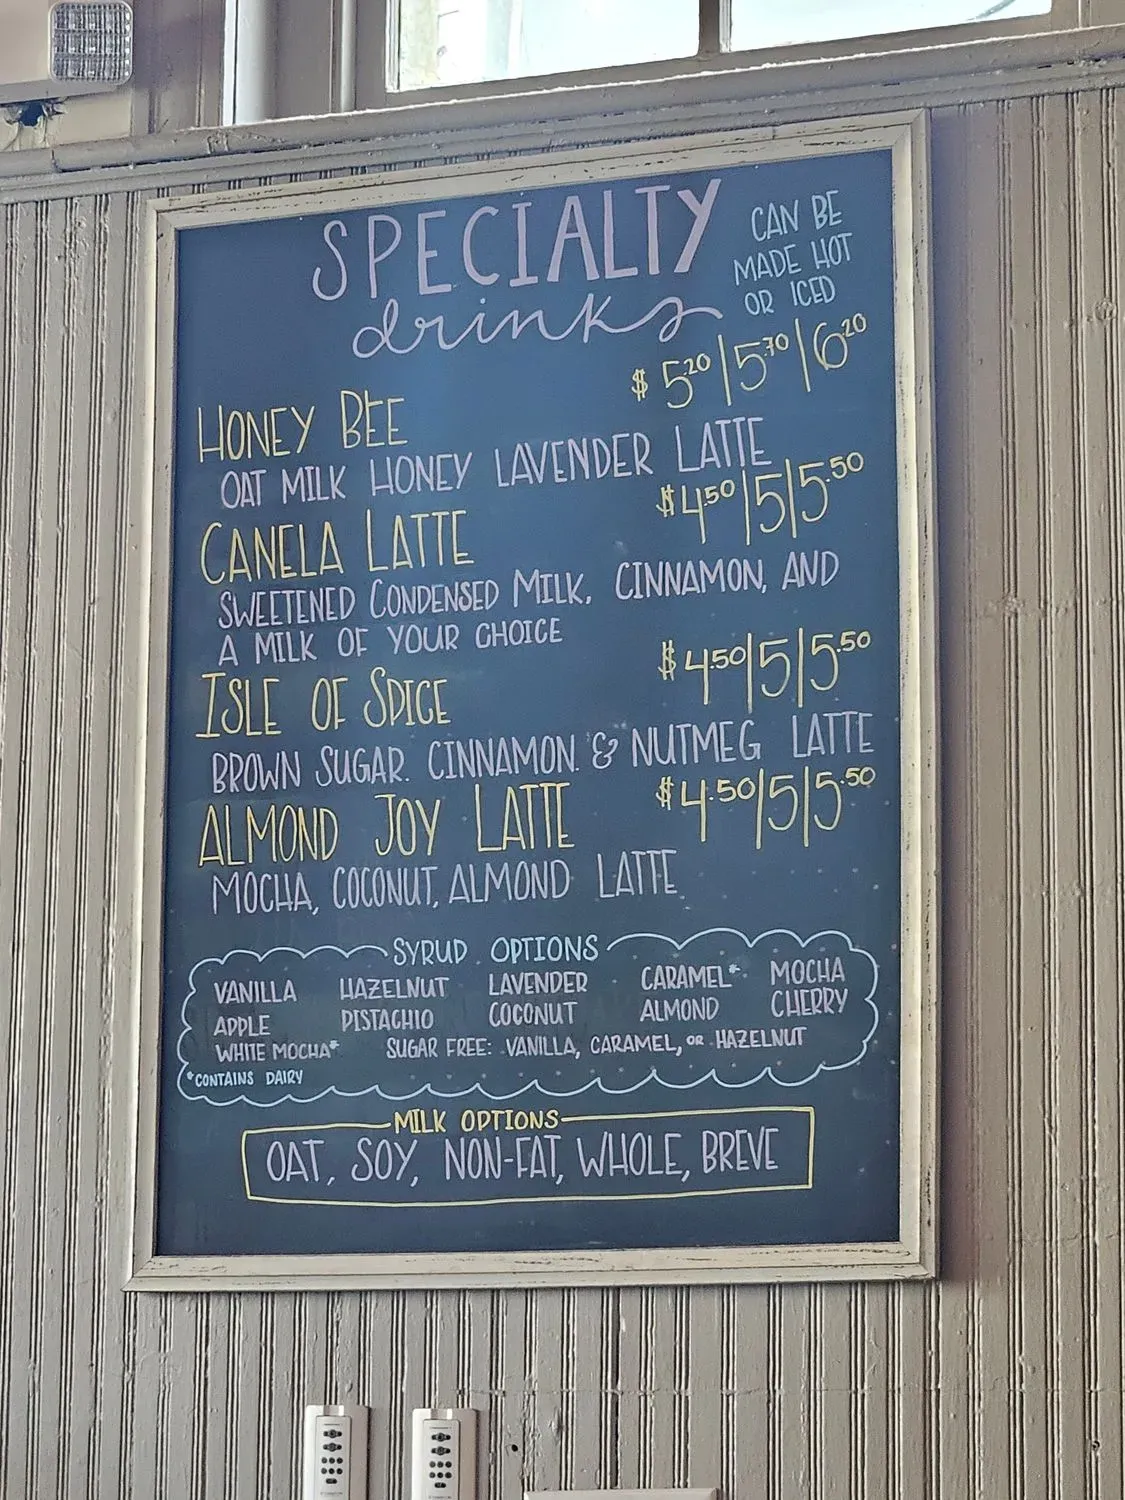 SPECIALTY
drinks
CAN BE
MADE HOT
OR ICED
$ 5.20 | 5.70 | 6.20
HONEY BEE
OAT MILK HONEY LAVENDER LATTE
$4.50 | 5 | 5.50
CANELA LATTE
SWEETENED CONDENSED MILK, CINNAMON, AND
A MILK OF YOUR CHOICE
$4.50 | 5 | 5.50
ISLE OF SPICE
BROWN SUGAR. CINNAMON. & NUTMEG LATTE
$4.50 | 5 | 5.50
ALMOND JOY LATTE
MOCHA, COCONUT, ALMOND LATTE
SYRUP OPTIONS
VANILLA HAZELNUT LAVENDER CARAMEL* MOCHA
APPLE PISTACHIO COCONUT ALMOND CHERRY
WHITE MOCHA* SUGAR FREE: VANILLA, CARAMEL, OR HAZELNUT
*CONTAINS DAIRY
MILK OPTIONS
OAT, SOY, NON-FAT, WHOLE, BREVE